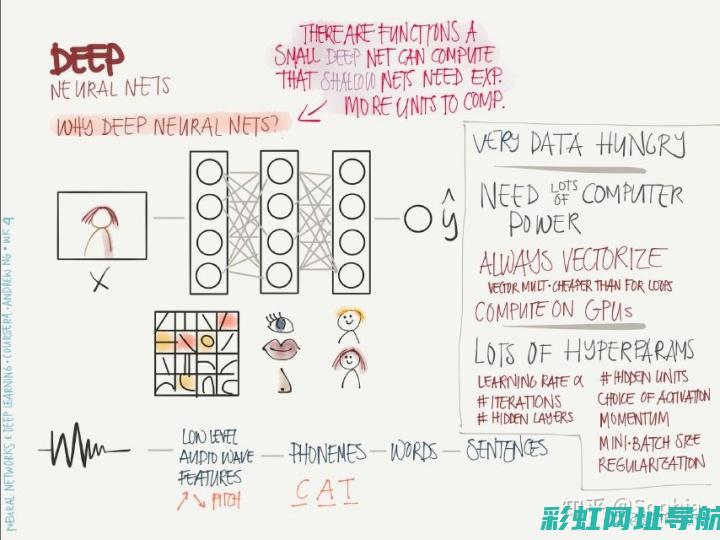 DEEP
NEURAL NETS
WHY DEEP NEURAL NETS?
THERE ARE FUNCTIONS A
SMALL DEEP NET CAN COMPUTE
THAT SHALLOW NETS NEED EXP.
MORE UNITS TO COMP.
X
ŷ
VERY DATA HUNGRY
NEED LOTS OF COMPUTER
POWER
ALWAYS VECTORIZE
VECTOR MULT. CHEAPER THAN FOR LOOPS
COMPUTE ON GPUs
LOTS OF HYPERPARAMS
LEARNING RATE α
# ITERATIONS
# HIDDEN LAYERS
# HIDDEN UNITS
CHOICE OF ACTIVATION
MOMENTUM
MINI-BATCH SIZE
REGULARIZATION
LOW LEVEL
AUDIO WAVE
FEATURES
PITCH
PHONEMES
C A T
WORDS
SENTENCES
NEURAL NETWORKS & DEEP LEARNING • COURSERA • ANDREW NG • WK 4
知乎 @Sophia
彩虹网址导航